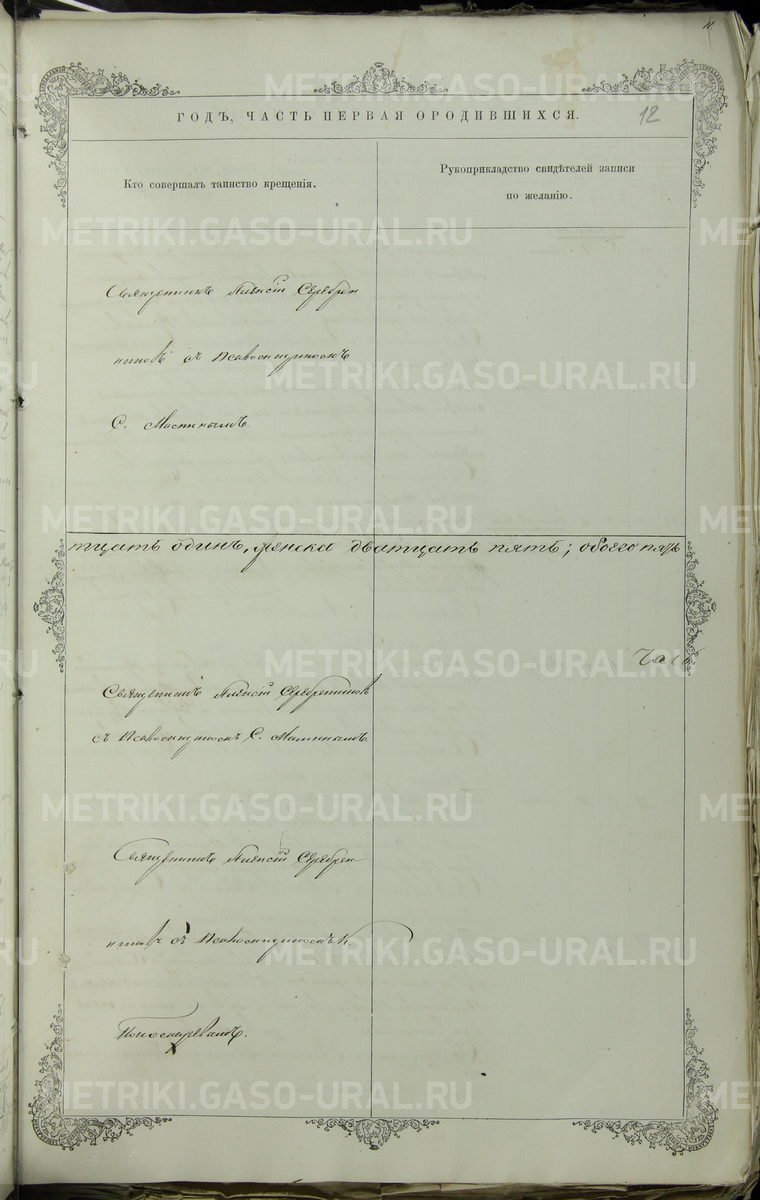 12
ГОДЪ, ЧАСТЬ ПЕРВАЯ О РОДИВШИХСЯ.
Кто совершалъ таинство крещенія.
Рукоприкладство свидѣтелей записи
по желанію.
Священникъ Алексій Серебрен
никовъ съ Псаломщикомъ
С.
тцать одинъ, женска дватцать пять; обоего пять
Священникъ Алексій Серебренниковъ
съ Псаломщикомъ С.
Священникъ Алексій Серебрен
никовъ съ Псаломщикомъ
METRIKI.GASO-URAL.RU